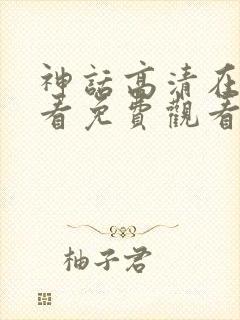 神話高清在
看免費觀看
柚子君